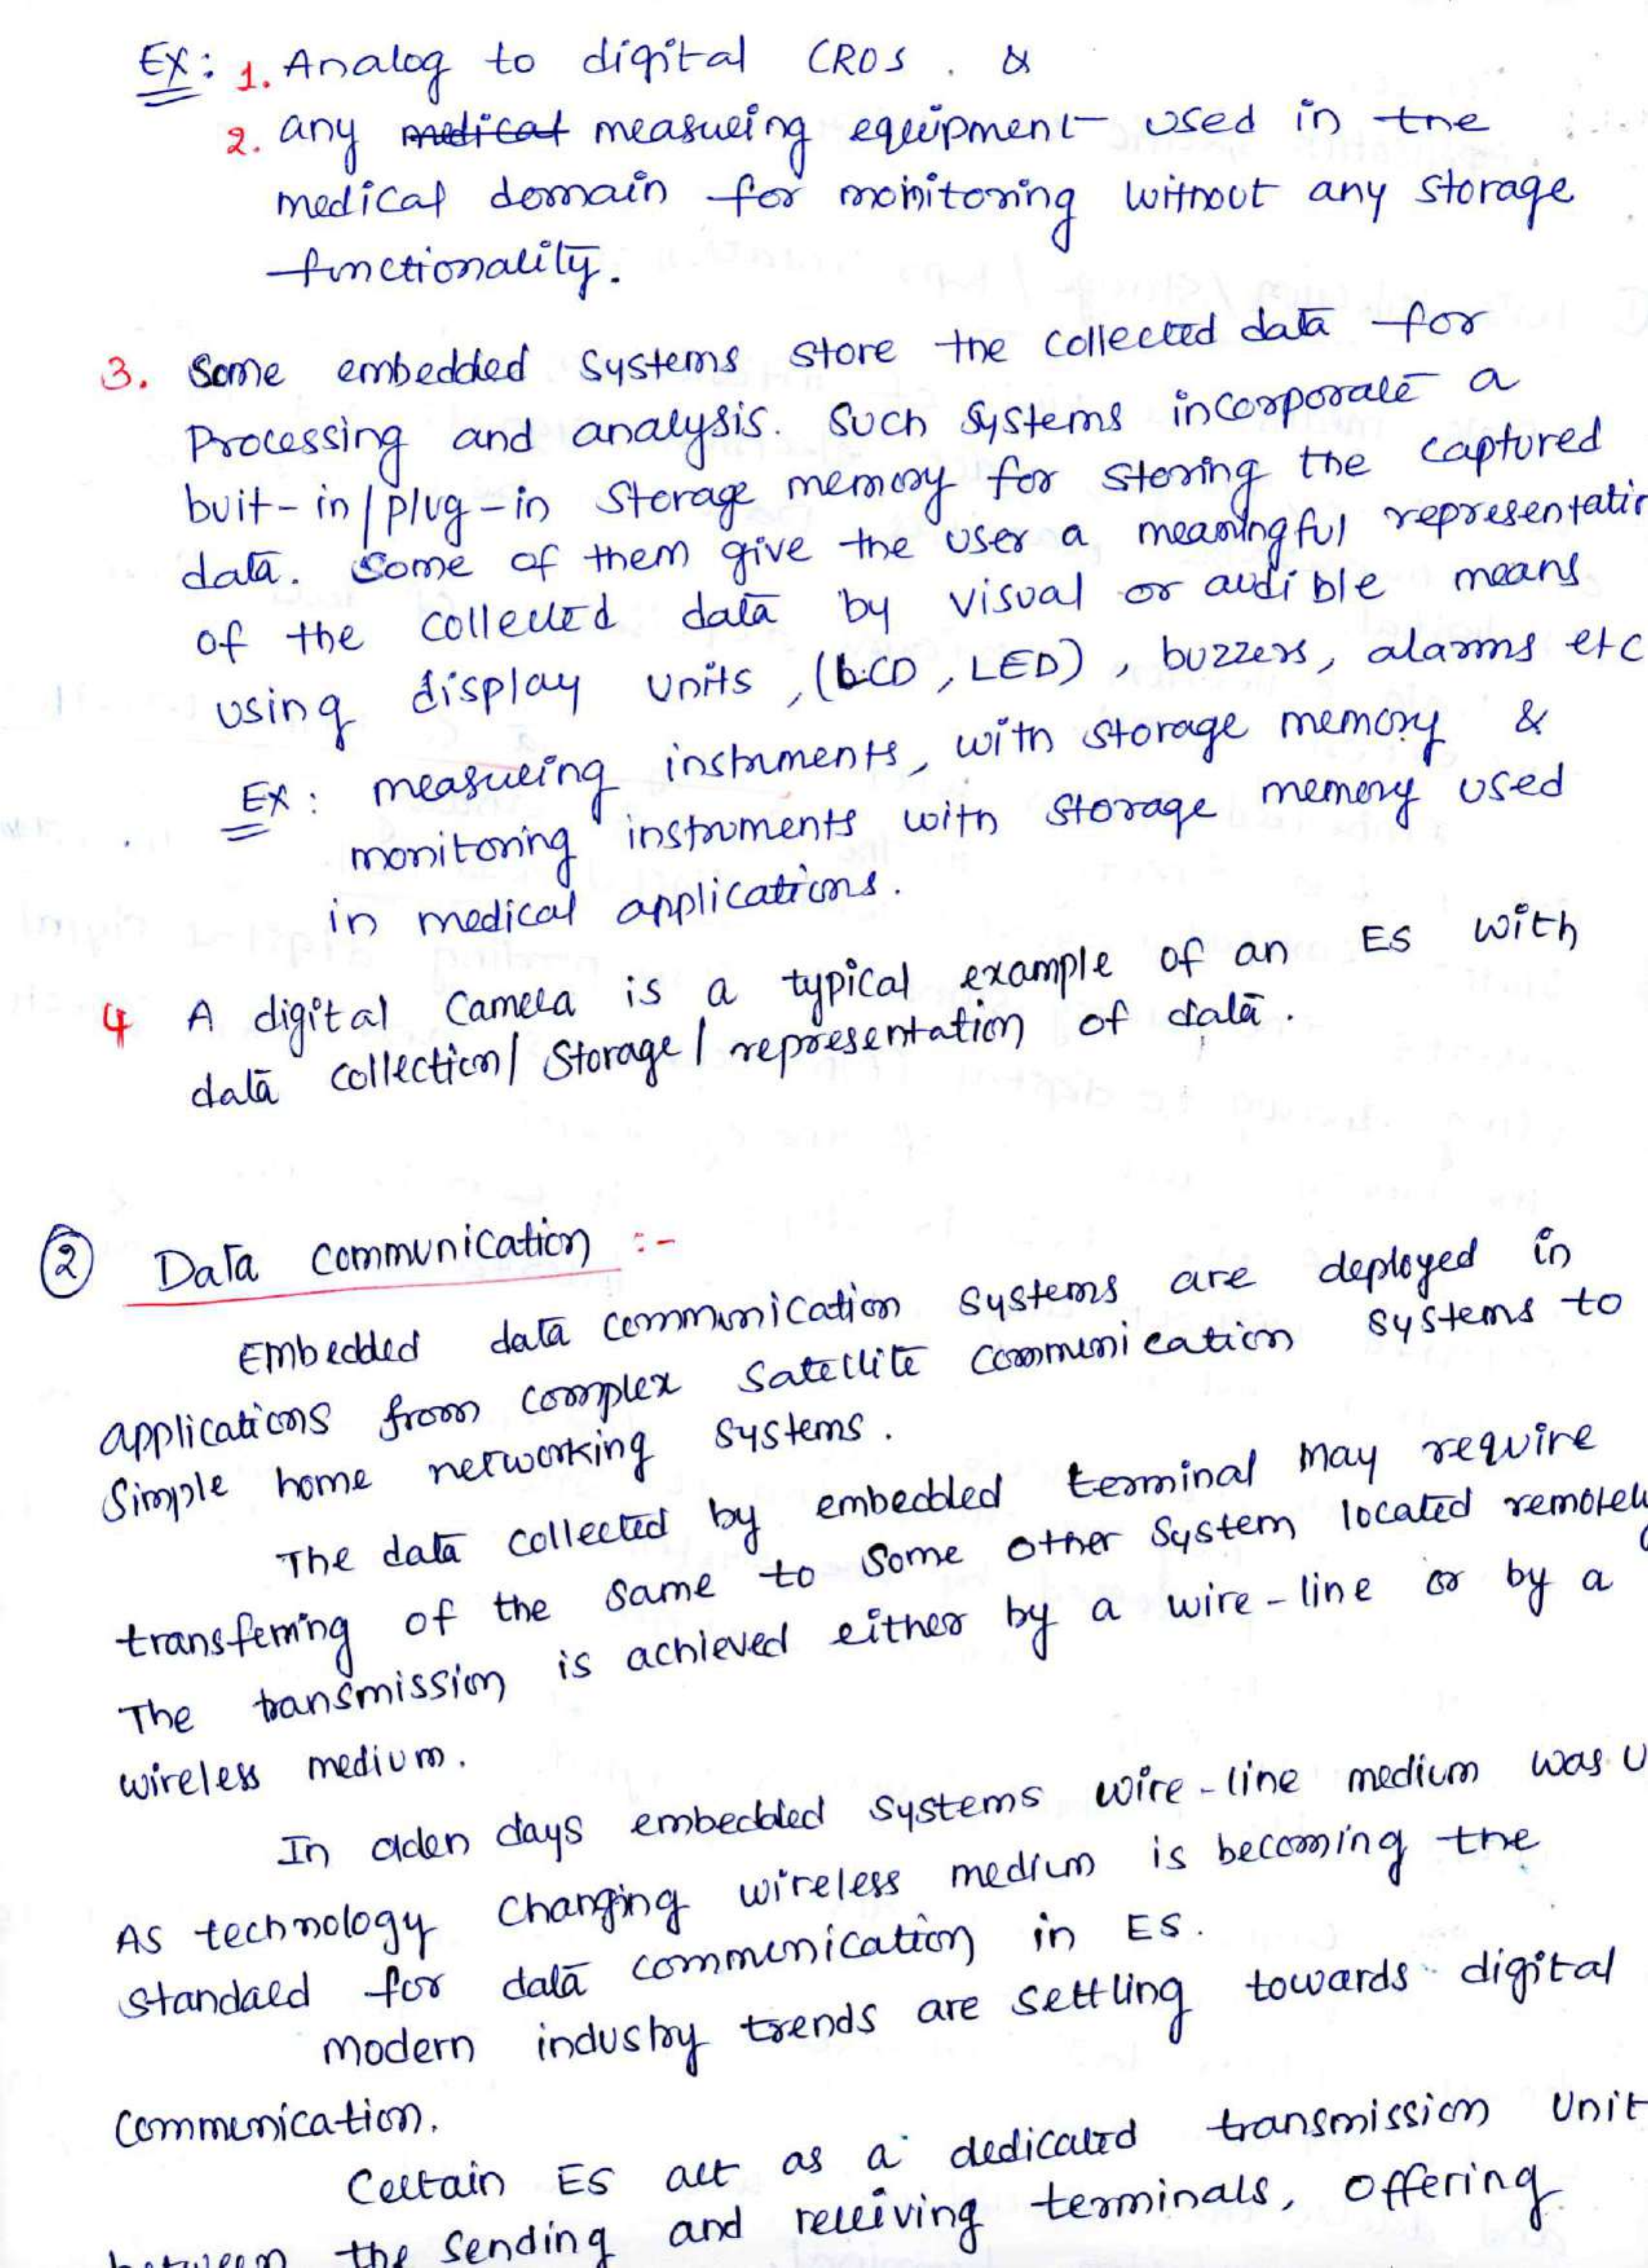 Ex: 1. Analog to digital CROs. &
2. any medical measuring equipment used in the
medical domain for monitoring without any storage
functionality.
3. Some embedded systems store the collected data for
Processing and analysis. Such systems incorporate a
buit-in/plug-in storage memory for storing the captured
data. Some of them give the user a meaningful representatin
of the collected data by visual or audible means
using display units, (LCD, LED), buzzers, alarms etc
Ex: measuring instruments, with storage memory &
monitoring instruments with storage memory used
in medical applications.
4 A digital camera is a typical example of an ES with
data collection/storage/representation of data.
2 Data communication :-
Embedded data communication systems are deployed in
applications from complex satellite communication systems to
simple home networking systems.
The data collected by embedded terminal may require
transferring of the same to some other system located remotely
The transmission is achieved either by a wire-line or by a
wireless medium.
In olden days embedded systems wire-line medium was u
As technology changing wireless medium is becoming the
standard for data communication in ES.
modern industry trends are settling towards digital
communication.
Certain ES act as a dedicated transmission Unit
between the sending and receiving terminals, offering